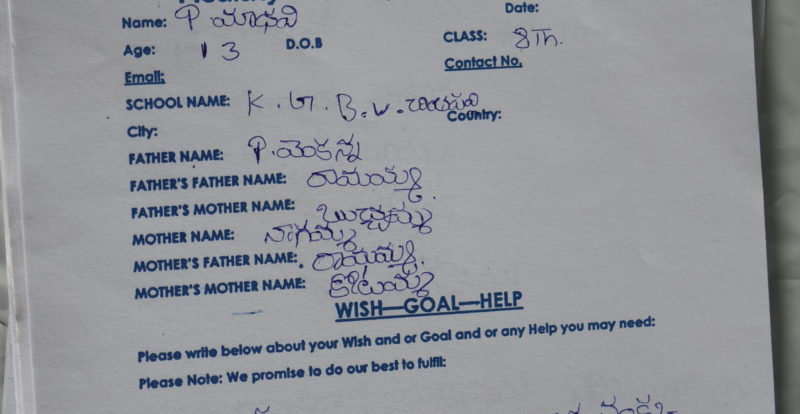 Date:
Name: P మాధవి
Age: 13 D.O.B CLASS: 8Th.
Email: Contact No.
SCHOOL NAME: K. G. B. V.
City: Country:
FATHER NAME: P. వెంకన్న
FATHER'S FATHER NAME: రామయ్య
FATHER'S MOTHER NAME: బుచ్చమ్మ
MOTHER NAME: నాగమ్మ
MOTHER'S FATHER NAME: రామయ్య
MOTHER'S MOTHER NAME: కోటమ్మ
WISH—GOAL—HELP
Please write below about your Wish and or Goal and or any Help you may need:
Please Note: We promise to do our best to fulfil: